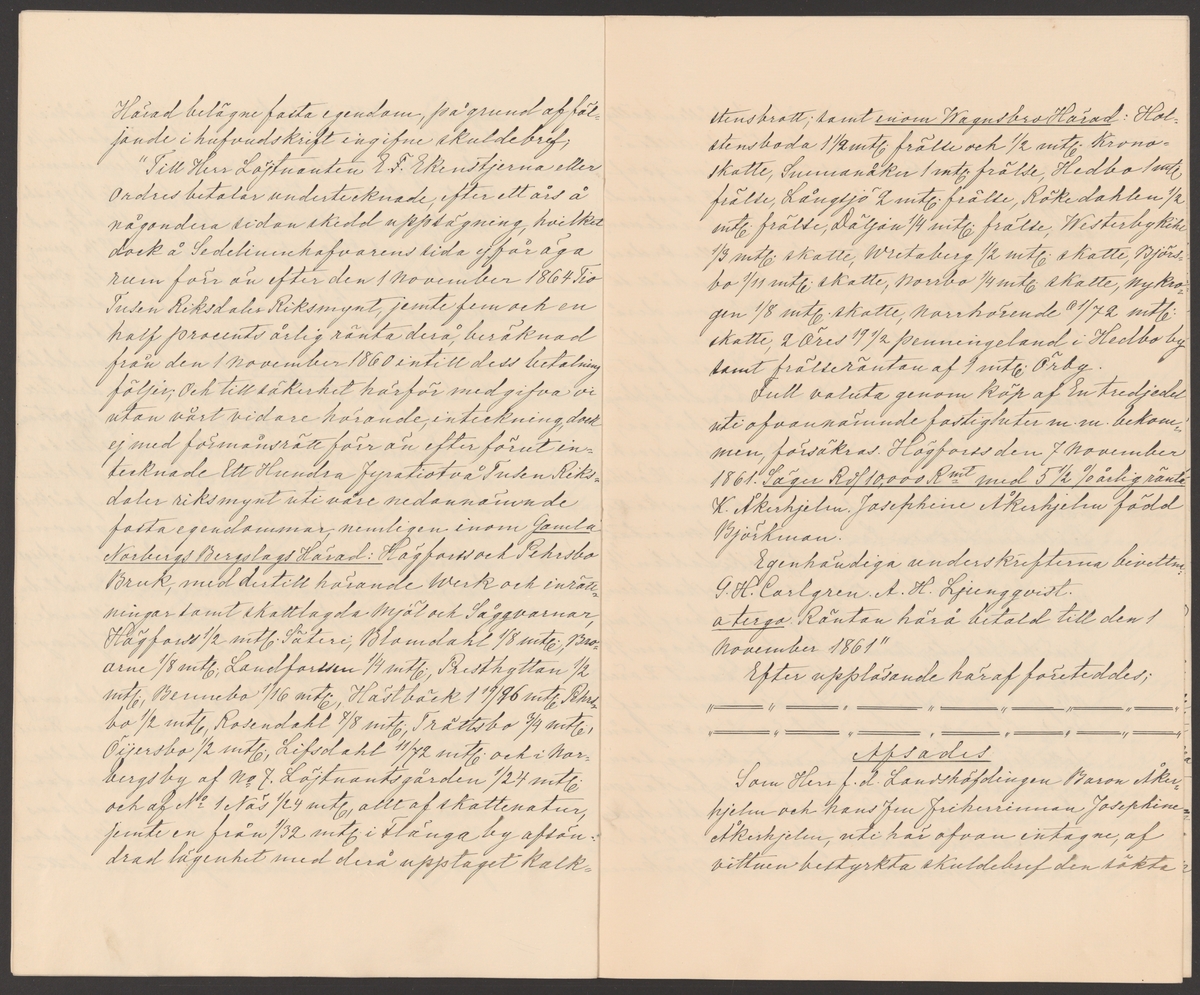 Härad belägne fasta egendom, på grund af föl-
jande i hufvudskrift ingifne skuldebref;
"Till Herr Löjtnanten E. F. Ekenstjerna eller
Ordres betalar undertecknade, efter ett års å
någondera sidan skedd uppsägning, hvilket
dock å Sedelinnehafvarens sida ej får äga
rum förr än efter den 1 November 1864 Tio
Tusen Riksdaler Riksmynt, jemte fem och en
half procents årlig ränta derå, beräknad
från den 1 November 1860 intill dess betalning
följer; Och till säkerhet härför medgifva vi
utan vårt vidare hörande, inteckning, dock
ej med förmånsrätt förr än efter förut in-
tecknade Ett Hundra Fyratiotvå Tusen Riks-
daler riksmynt uti våre nedannämnde
fasta egendommar, nemligen inom Gamla
Norbergs Bergslags Härad: Högfors och Pehrsbo
Bruk, med dertill hörande Werk och inrätt-
ningar samt skattlagda Mjöl och Sågqvarnar,
Högfors 1/2 mtl; Säteri, Blomdahl 1/8 mtl; Bro-
arne 1/8 mtl; Landforssen 1/4 mtl; Presthyttan 1/2
mtl; Bennebo 7/16 mtl; Hästbäck 1 19/96 mtl; Pehrs-
bo 1/2 mtl; Rosendahl 1/8 mtl; Trättsbo 3/4 mtl;
Öijersbo 1/2 mtl; Lifsdahl 11/72 mtl: och i Nor-
bergsby af No 7. Löjtnantsgården 1/24 mtl:
och af No 1 Näs 1/24 mtl; allt af skattenatur,
jemte en från 1/32 mtl: i Flänga by afsön-
drad lägenhet med derå upptaget Kalk-
stensbrott; samt inom Wagnsbro Härad: Hol-
stensboda 1 1/2 mtl; frälse och 1/2 mtl: Krono-
skatte, Sunnanåker 1 mtl; frälse, Hedbo 1 mtl
frälse, Långsjö 2 mtl; frälse, Rökedahlen 1/2
mtl; frälse, Däljan 1/4 mtl; frälse, Westerbykihl
1/3 mtl; skatte, Wretaberg 1/2 mtl; skatte, Björs-
bo 1/11 mtl; skatte, Norrbo 1/4 mtl; skatte, Nykro-
gen 1/8 mtl; skatte, Norrhörende 61/72 mtl:
skatte, 2 Öres 19 1/2 penningeland i Hedbo by
samt frälseräntan af 1 mtl; Örby.
Full valuta genom köp af En tredjedel
uti ofvannämnde fastigheter m. m. bekom-
men, försäkras. Högfors den 7 November
1861. Säger Rd 10,000 Rmt med 5 1/2 % årlig ränta
K. Åkerhjelm. Josephine Åkerhjelm född
Björkman.
Egenhändiga underskrifterna bevittna:
G. H. Carlgren. A. H. Ljungqvist.
a tergo. Räntan härå betald till den 1
November 1861"
Efter uppläsande häraf företeddes;
Afsades
Som Herr f. d. Landshöfdingen Baron Åker-
hjelm och hans Fru Friherrinnan Josephine
Åkerhjelm, uti här ofvan intagne, af
vittnen bestyrkta skuldebref den sökta